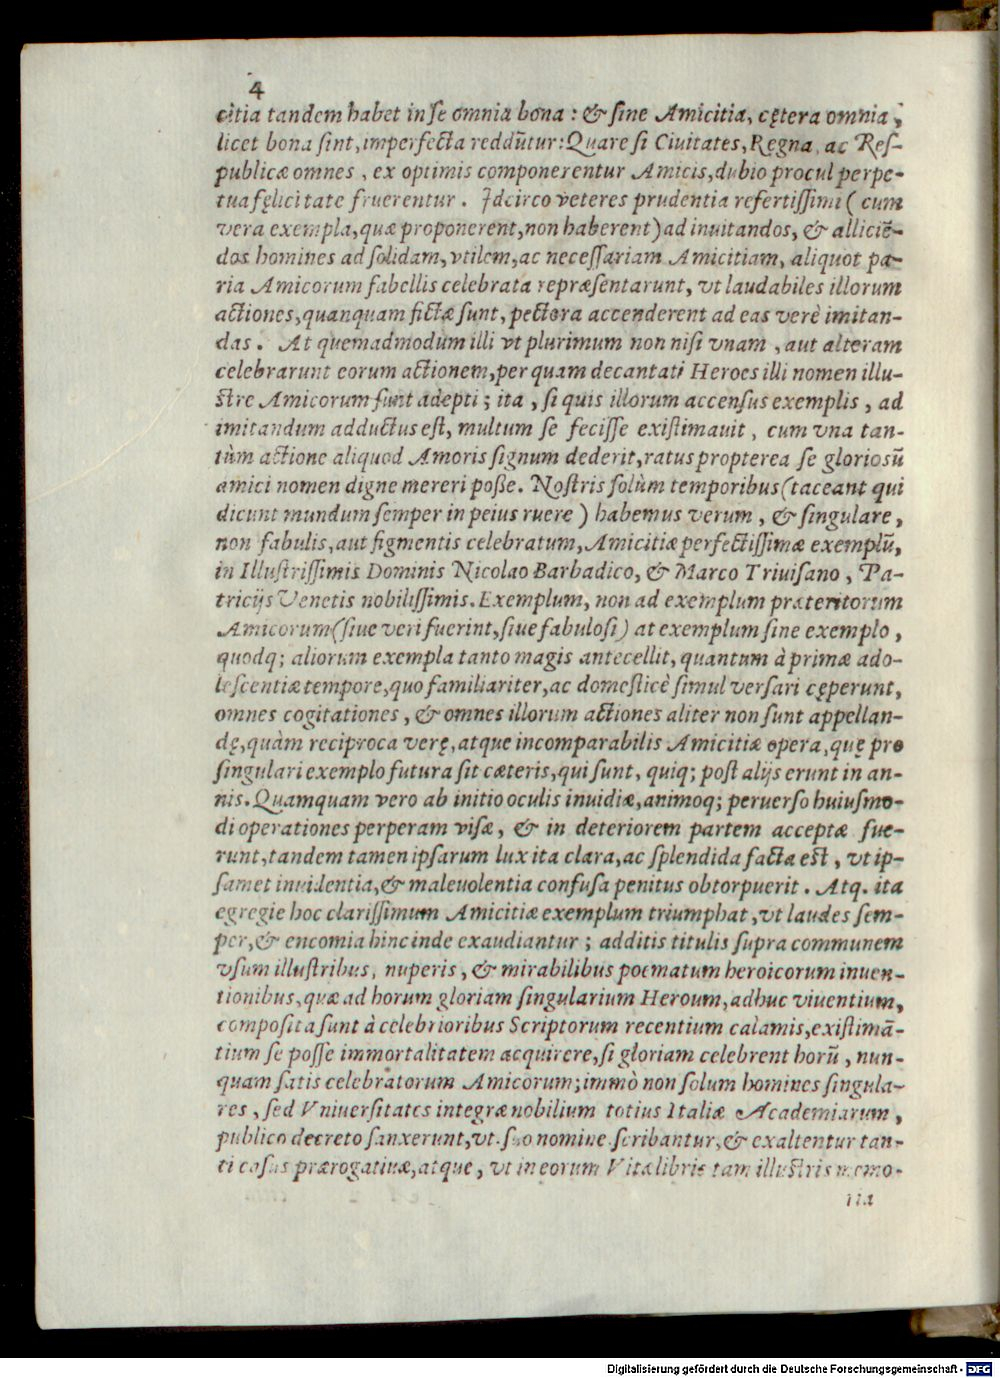 4
citia tandem habet in se omnia bona : & sine Amicitia, cętera omnia ,
licet bona sint, imperfecta reddūtur: Quare si Ciuitates, Regna, ac Res-
publicæ omnes , ex optimis componerentur Amicis, dubio procul perpe-
tua fęlicitate fruerentur . Idcirco veteres prudentia refertissimi ( cum
vera exempla, quæ proponerent, non haberent) ad inuitandos, & alliciē-
dos homines ad solidam, vtilem, ac necessariam Amicitiam, aliquot pa-
ria Amicorum fabellis celebrata repræsentarunt, vt laudabiles illorum
actiones, quanquam fictæ sunt, pectora accenderent ad eas verè imitan-
das . At quemadmodum illi vt plurimum non nisi vnam , aut alteram
celebrarunt eorum actionem, per quam decantati Heroes illi nomen illu-
stre Amicorum sunt adepti ; ita , si quis illorum accensus exemplis , ad
imitandum adductus est, multum se fecisse existimauit , cum vna tan-
tùm actione aliquod Amoris signum dederit, ratus propterea se gloriosū
amici nomen digne mereri poße. Nostris solùm temporibus (taceant qui
dicunt mundum semper in peius ruere ) habemus verum , & singulare,
non fabulis, aut figmentis celebratum, Amicitiæ perfectissimæ exemplū,
in Illustrissimis Dominis Nicolao Barbadico, & Marco Triuisano , Pa-
tricijs Venetis nobilissimis. Exemplum, non ad exemplum præteritorum
Amicorum (siue veri fuerint, siue fabulosi) at exemplum sine exemplo ,
quodq; aliorum exempla tanto magis antecellit, quantum à primæ ado-
lescentiæ tempore, quo familiariter, ac domesticè simul versari cęperunt,
omnes cogitationes , & omnes illorum actiones aliter non sunt appellan-
dę, quàm reciproca verę, atque incomparabilis Amicitiæ opera, quę pro
singulari exemplo futura sit cæteris, qui sunt, quiq; post alijs erunt in an-
nis. Quamquam vero ab initio oculis inuidiæ, animoq; peruerso huiusmo-
di operationes perperam visæ, & in deteriorem partem acceptæ fue-
runt, tandem tamen ipsarum lux ita clara, ac splendida facta est , vt ip-
samet inuidentia, & maleuolentia confusa penitus obtorpuerit . Atq. ita
egregie hoc clarissimum Amicitiæ exemplum triumphat , vt laudes sem-
per, & encomia hinc inde exaudiantur ; additis titulis supra communem
vsum illustribus, nuperis , & mirabilibus poematum heroicorum inuen-
tionibus, quæ ad horum gloriam singularium Heroum, adhuc viuentium,
composita sunt à celebrioribus Scriptorum recentium calamis, existimā-
tium se posse immortalitatem acquirere, si gloriam celebrent horū , nun-
quam satis celebratorum Amicorum; immò non solum homines singula-
res , sed Vniuersitates integræ nobilium totius Italiæ Academiarum ,
publico decreto sanxerunt, vt suo nomine scribantur, & exaltentur tan-
ti casus prærogatiuæ, atque , vt in eorum Vitæ libris tam illustris memo-
ria
Digitalisierung gefördert durch die Deutsche Forschungsgemeinschaft - DFG